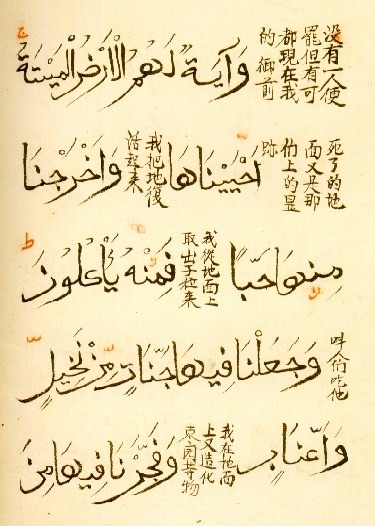 没有一人便
罷但有可
都現在我
的御前
وَآيَةٌ لَهُمُ الْأَرْضُ الْمَيْتَةُ
死了的地
面又是那
上的
跡
أَحْيَيْنَاهَا
我把地復
活起来
وَأَخْرَجْنَا
مِنْهَا حَبًّا
我從地面上
取出子粒来
فَمِنْهُ يَأْكُلُونَ
吃他
وَجَعَلْنَا فِيهَا جَنَّاتٍ مِنْ نَخِيلٍ
وَأَعْنَابٍ
我在地面
上又造化
园等物
وَفَجَّرْنَا فِيهَا مِنَ